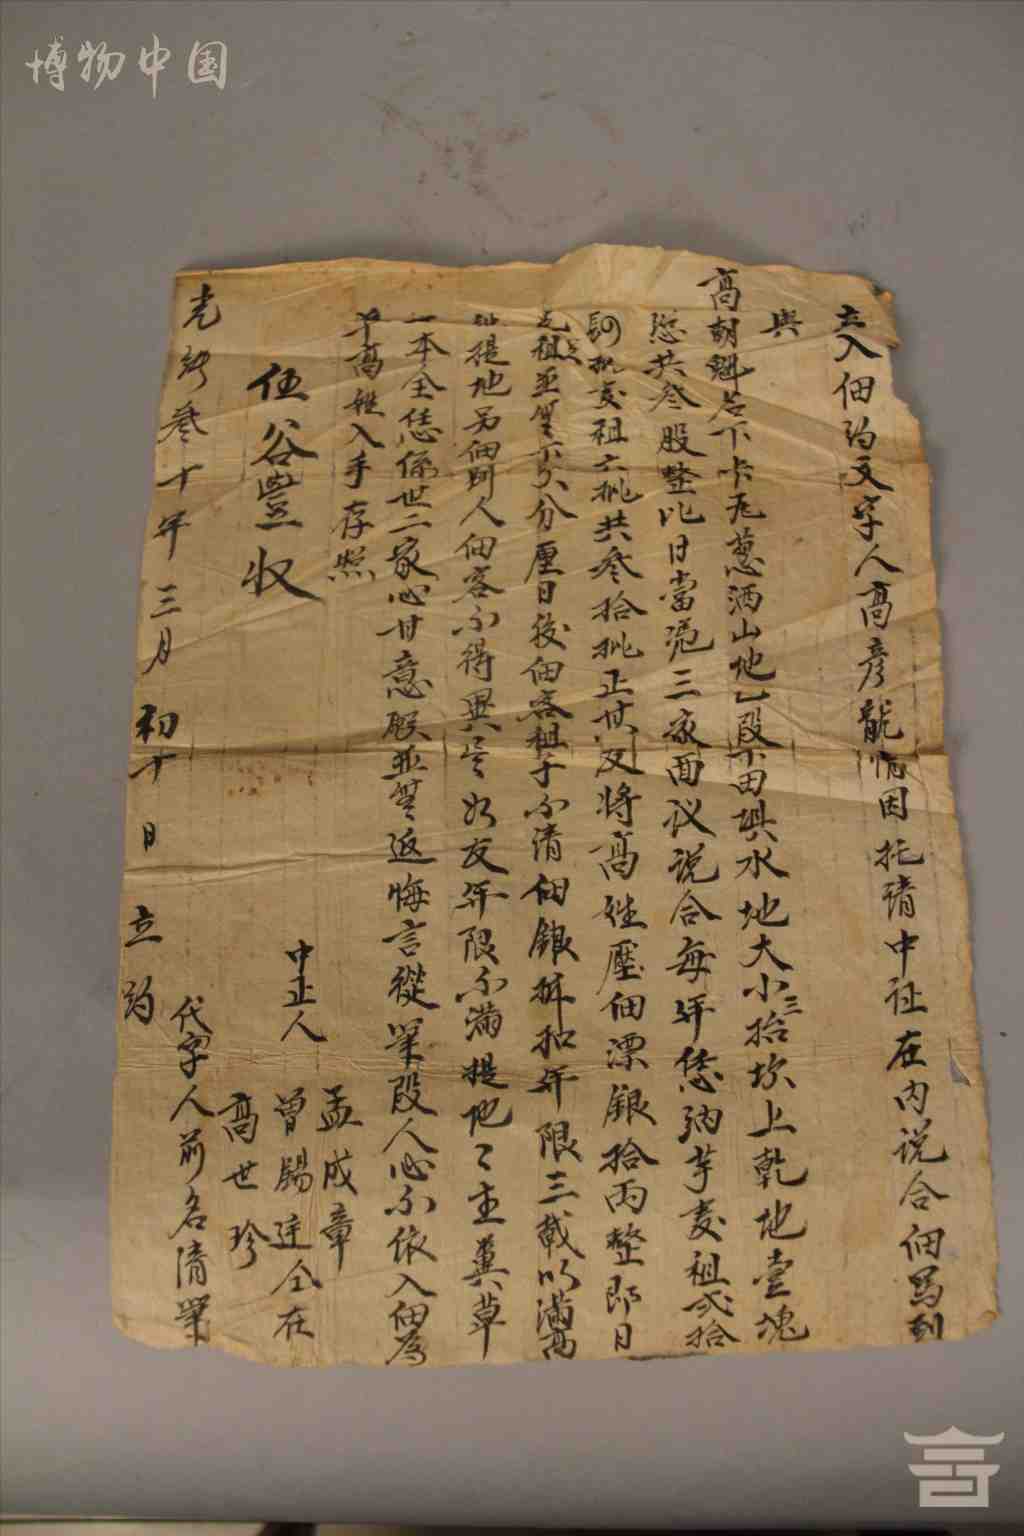 博物中国
立入佃约文字人高彦龍情因托请中证在内说合佃到
與
高朝魁名下卡瓦葱洒山地乙段下田壩水地大小三拾坎上乾地壹塊
憑共叁股整比日當凭三家面议说合每年恁纳芋麦祖弍拾
批麦祖六批共叁拾批正其又将高姓壓佃漂銀拾両整即日
祖並無下欠分厘日後佃客祖子不清佃銀拆扣年限三載以滿高
提地另佃别人佃客不得異言如友年限不滿提地〻主糞草
一本全恁係世二家心甘意愿並無返悔言從筆段人心不依入佃為
高姓入手存照
伍谷豐收
中正人
孟成章
曾賜廷仝在
高世珍
代字人前名清筆
光緒叁十年三月初十日立约